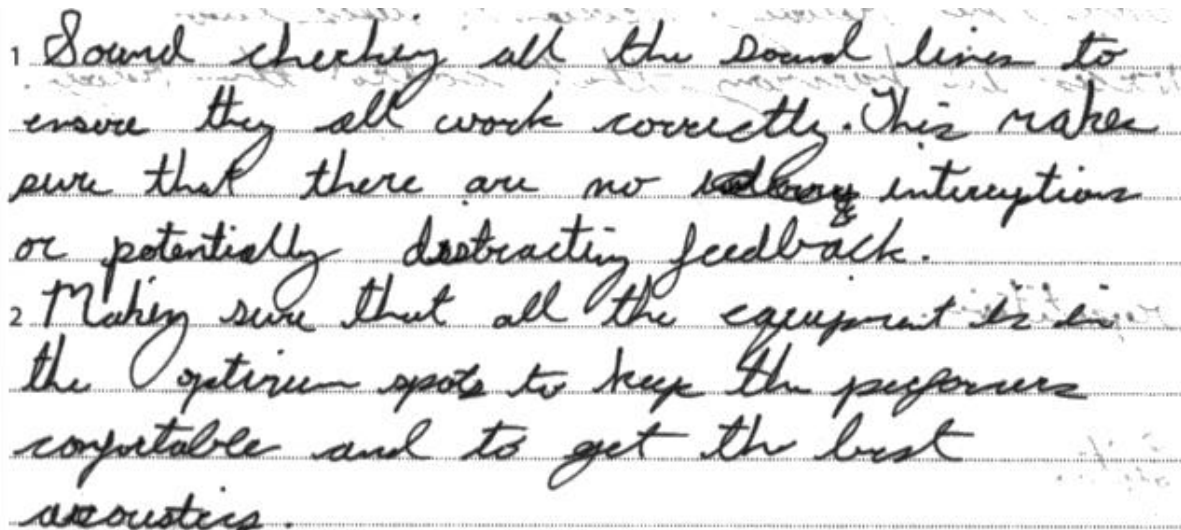 1 Sound checking all the sound lines to
ensure they all work correctly. This makes
sure that there are no interuptions
or potentially distracting feedback.
2 Making sure that all the equipment is in
the optimum spots to keep the performers
comfortable and to get the best
acoustics.